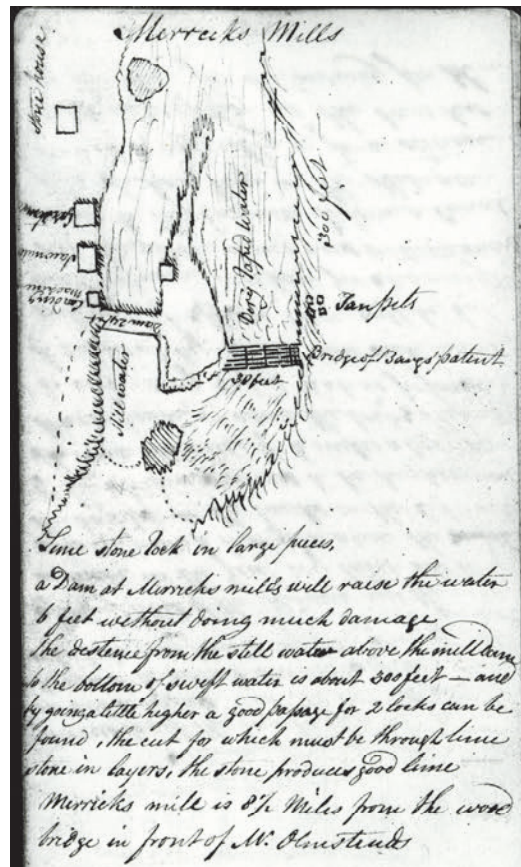 Merricks Mills
Stone house
Sawmill
Carding machine
Dam 24 ft
Mill water
Very rapid water
300 feet
Tanpits
Bridge of Bangs patent
38 feet
Lime stone lock in large pieces,
a Dam at Merricks mills will raise the water
6 feet without doing much damage
the destence from the still water above the mill dam
to the bottom of swift water is about 300 feet — and
by going a little higher a good passage for 2 locks can be
found, the cut for which must be through lime
stone in layers, the stone produces good lime
Merricks mill is 8½ Miles from the wood
bridge in front of Mr. Olmsteads